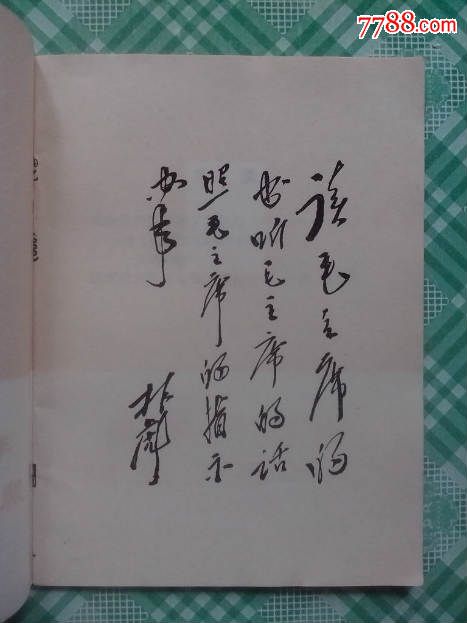 7788.com
读毛主席的
书听毛主席的话
照毛主席的指示
办事
林彪